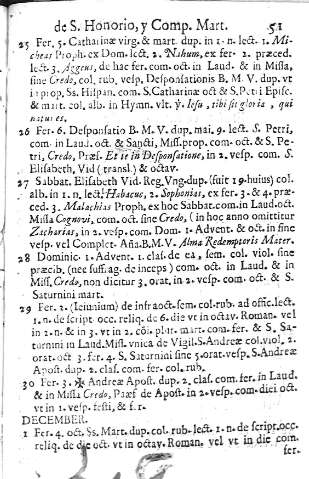 de S. Honorio, y Comp. Mart. 51
25 Fer. 5. Catharinæ virg. & mart. dup. in 1. n. lect. 1. Mi-
cheas Proph. ex Dom. lect. 2. Nahum, ex fer. 2. præced.
lect. 3. Aggeus, de hac fer. com. oct. in Laud. & in Missa,
sine Credo, col. rub. vesp. Desponsationis B. M. V. dup. vt
i prop. Ss. Hispan. com. S. Catharinæ oct & S. Petri Episc.
& mart. col. alb. in Hymn. vlt. ℣. Iesu, tibi sit gloria, qui
natus es.
26 Fer. 6. Desponsatio B. M. V. dup. mai. 9. lect. S. Petri,
com. in Laud. oct. & Sancti, Miss. prop. com. oct. & S. Pe-
tri, Credo, Præf. Et te in Desponsatione, in 2. vesp. com. S.
Elisabeth, Vid (transl.) & octav.
27 Sabbat. Elisabeth Vid. Reg. Vng. dup. (fuit 19. huius) col.
alb. in 1. n. lect. Habacuc, 2. Sophonias, ex fer. 3. & 4. præc-
ced. 3. Malachias Proph. ex hoc Sabbat. com. in Laud. oct.
Missa Cognovi, com. oct. sine Credo, (in hoc anno omittitur
Zacharias, in 2. vesp. com. Dom. 1. Advent. & oct. in sine
vesp. vel Complet. Aña. B. M. V. Alma Redemptoris Mater.
28 Dominic. 1. Advent. 1. clas. de ea, sem. col. viol. sine
præcib. (nec suff. ag. de inceps) com. oct. in Laud. & in
Miss. Credo, non dicitur 3. orat. in 2. vesp. com. oct. & S.
Saturnini mart.
29 Fer. 2. (Ieiunium) de infra oct. sem. col. rub. ad offic. lect.
1. n. de script. occ. reliq. de 6. die vt in octav. Roman. vel
in 2. n. & in 3. vt in 2. cõi. plur. mart. com. fer. & S. Sa-
turnini in Laud. Miss. vnica de Vigil. S. Andreæ col. viol. 2.
orat. oct 3. fer. 4. S. Saturnini sine 5. orat. vesp. S. Andreæ
Apost. dup. 2. clas. com. fer. col. rub.
30 Fer. 3. ✠ Andreæ Apost. dup. 2. clas. com. fer. in Laud.
& in Missa Credo, Præf de Apost. in 2. vesp. com. diei oct.
vt in 1. vesp. festi, & f. r.
DECEMBER.
1 Fer. 4. oct. Ss. Mart. dup. col. rub. lect. 1. n. de script. occ.
reliq. de die oct. vt in octav. Roman. vel vt in die com.
fer.